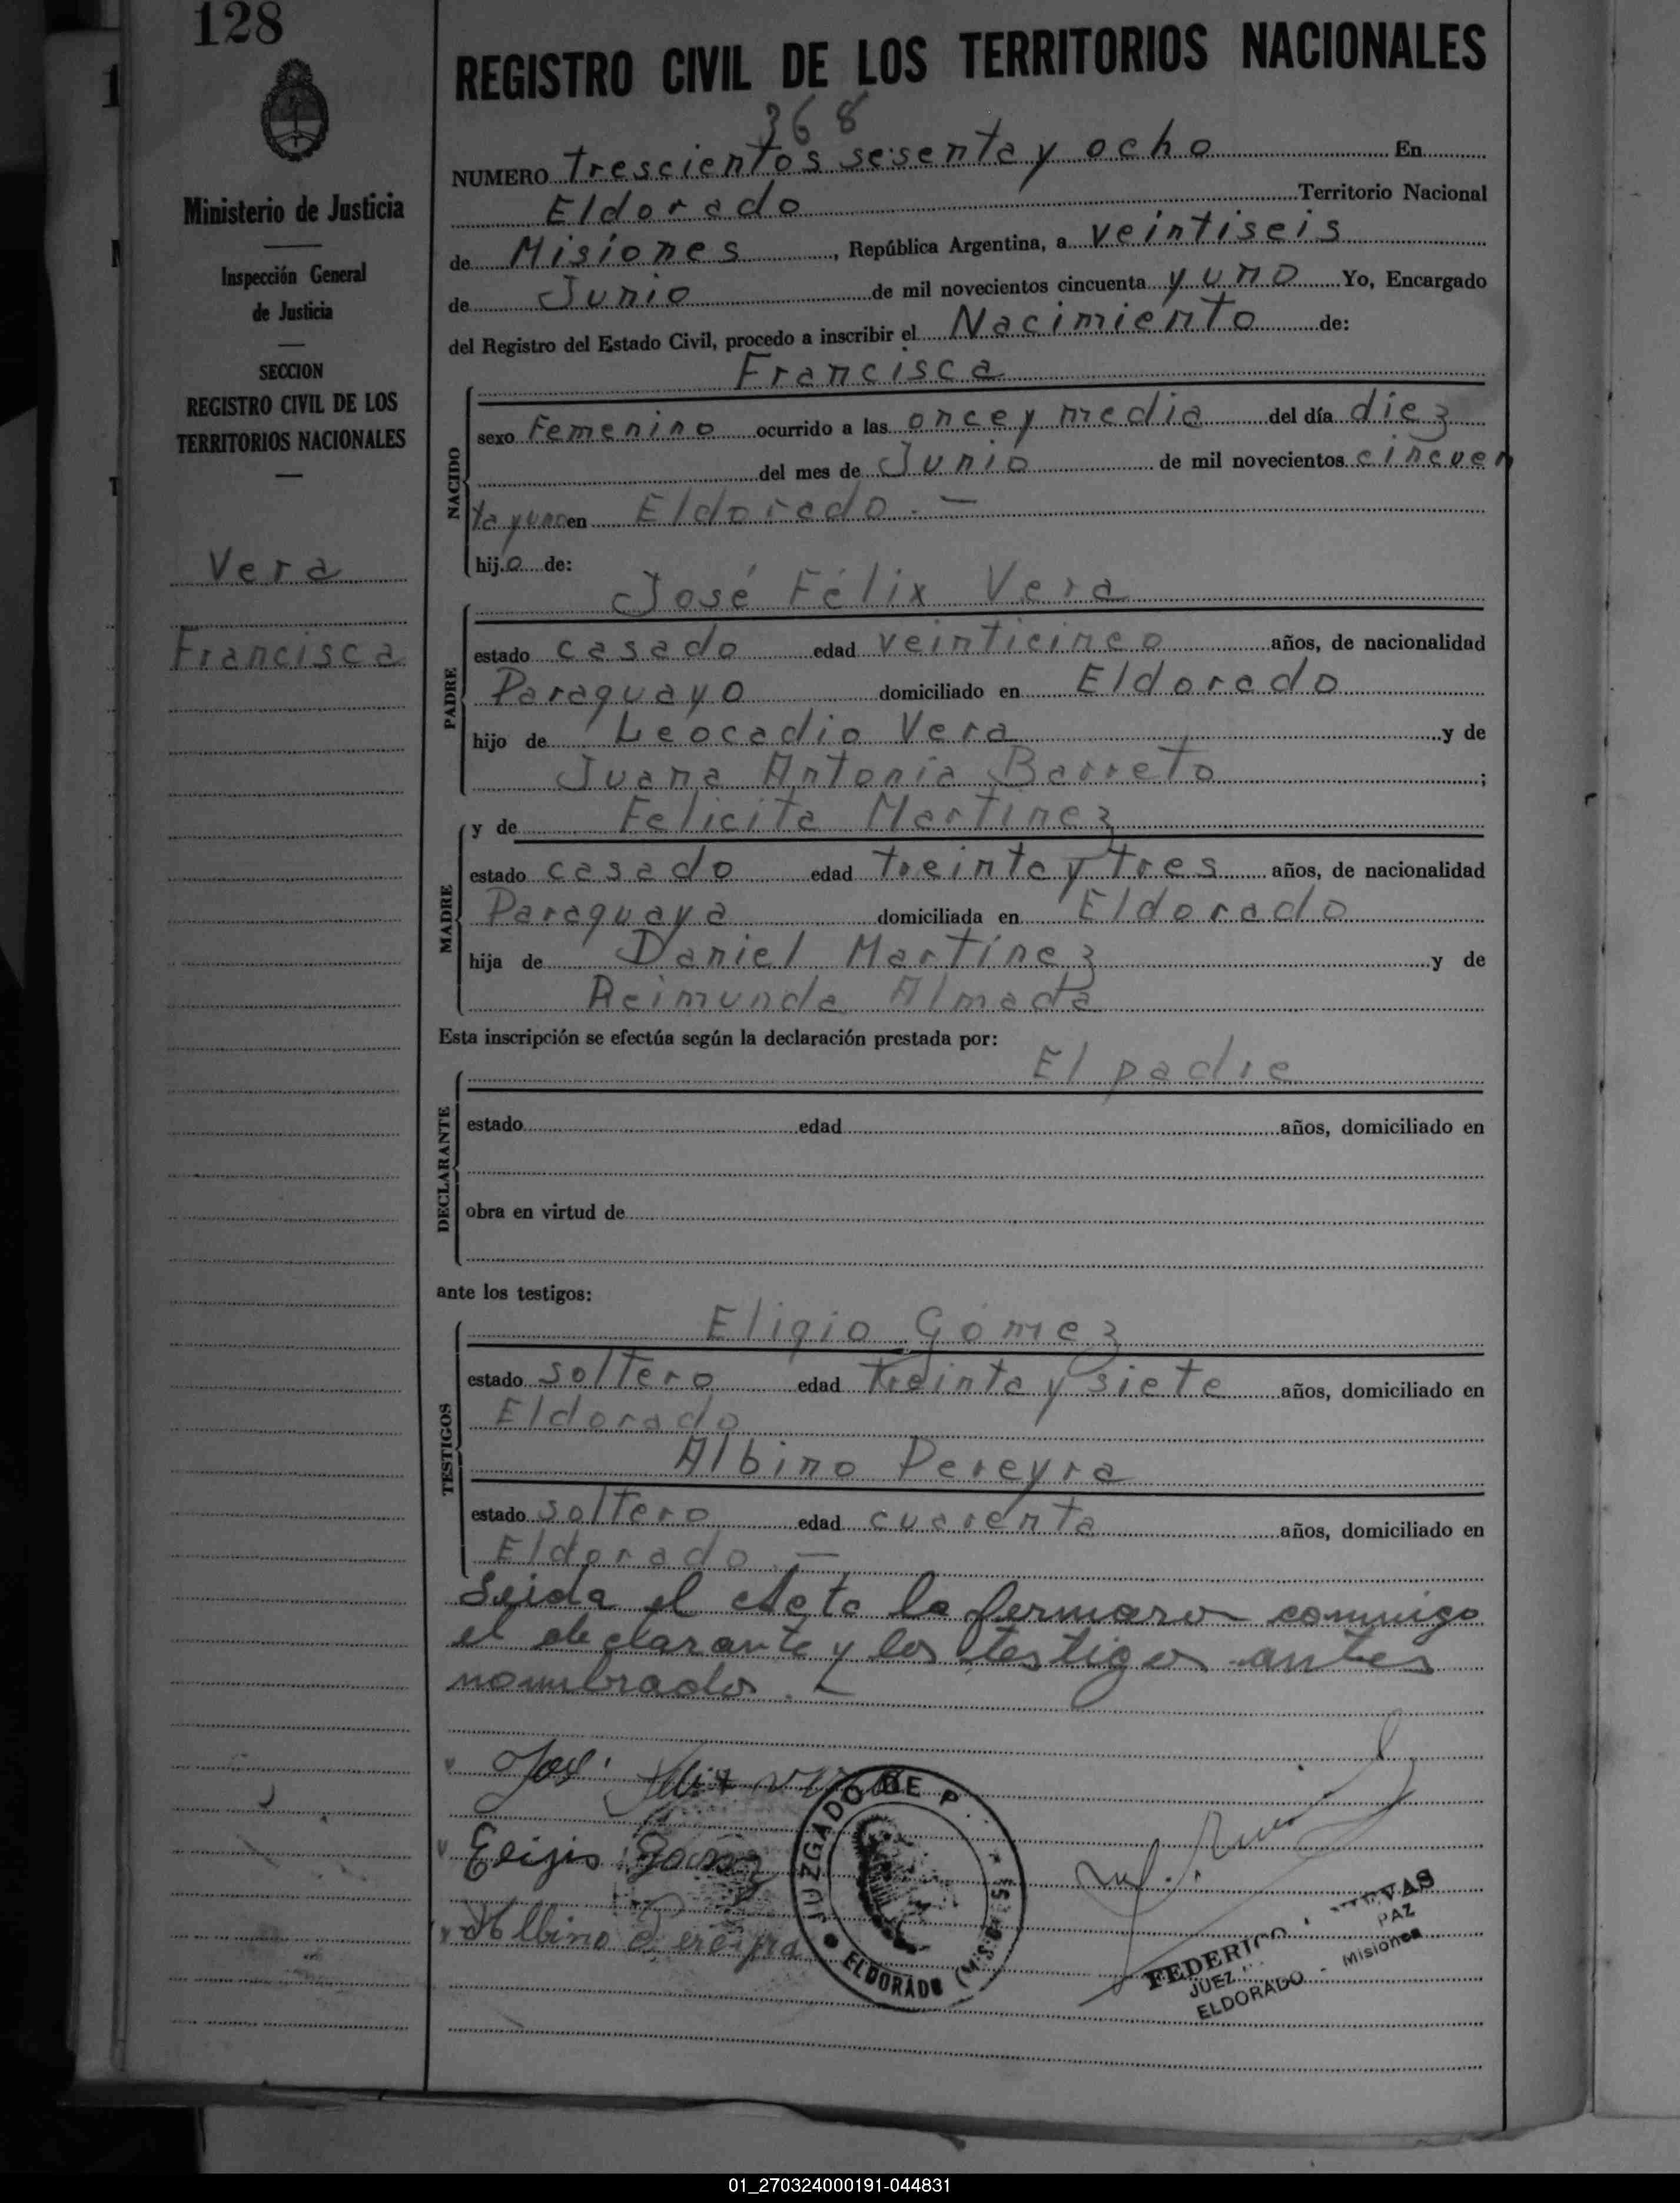 128
REGISTRO CIVIL DE LOS TERRITORIOS NACIONALES
368
NUMERO trescientos sesenta y ocho En
Eldorado Territorio Nacional
de Misiones, República Argentina, a veintiseis
de Junio de mil novecientos cincuenta y uno Yo, Encargado
del Registro del Estado Civil, procedo a inscribir el Nacimiento de:
Ministerio de Justicia
Inspección General
de Justicia
SECCION
REGISTRO CIVIL DE LOS
TERRITORIOS NACIONALES
Vera
Francisca
NACIDO
Francisca
sexo Femenino ocurrido a las once y media del día diez
del mes de Junio de mil novecientos cincuen
ta y uno en Eldorado.-
hijo de:
PADRE
José Félix Vera
estado casado edad veinticinco años, de nacionalidad
Paraguayo domiciliado en Eldorado
hijo de Leocadio Vera y de
Juana Antonia Barreto ;
MADRE
y de Felicita Martinez
estado casado edad treinta y tres años, de nacionalidad
Paraguaya domiciliada en Eldorado
hija de Daniel Martínez y de
Reimunda Almada
Esta inscripción se efectúa según la declaración prestada por:
DECLARANTE
El padre
estado edad años, domiciliado en
obra en virtud de
ante los testigos:
TESTIGOS
Eligio Gómez
estado soltero edad treinta y siete años, domiciliado en
Eldorado
Albino Pereyra
estado soltero edad cuarenta años, domiciliado en
Eldorado.-
Leida el Acta la firmaron conmigo
el declarante y los testigos antes
nombrados.-
José Felix Vera
Eligio Gomez
Albino Pereyra
JUZGADO DE P
ELDORADO
FEDERICO
JUEZ PAZ
ELDORADO - Misiones
01_270324000191-044831